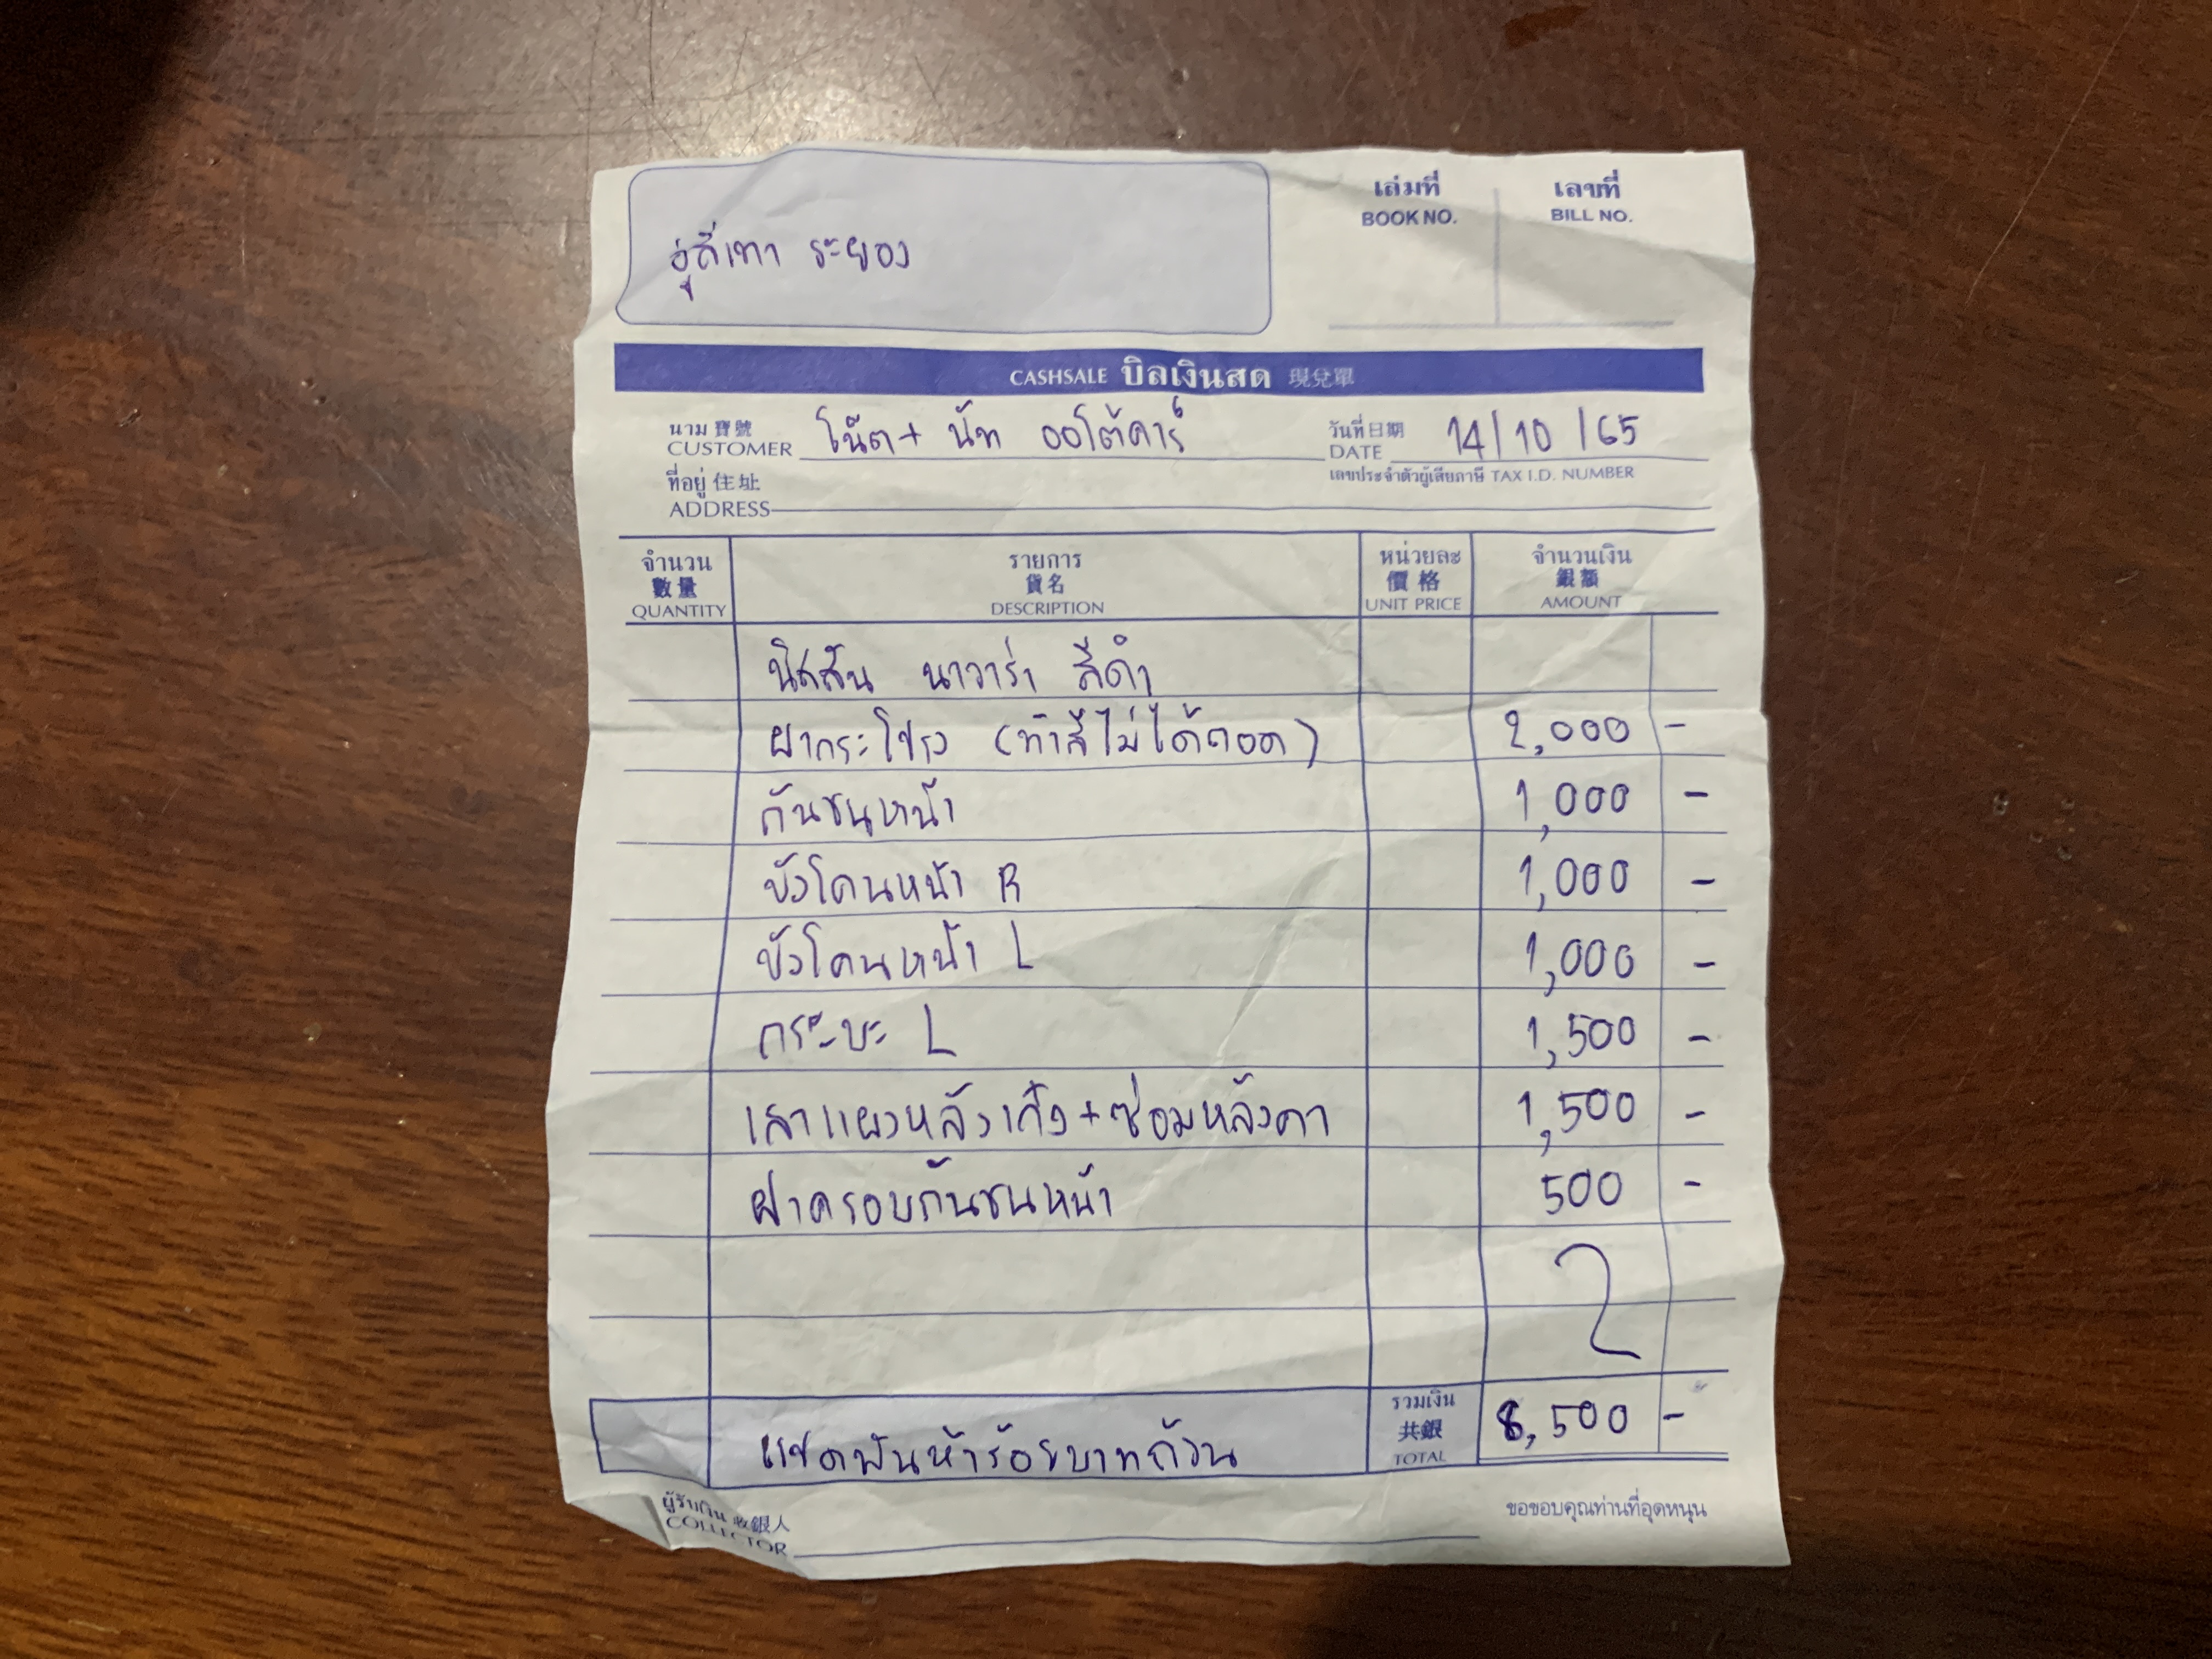 อู่สีเทา ระยอง
เล่มที่ เลขที่
BOOK NO. BILL NO.
CASHSALE บิลเงินสด 現兌單
นาม 寶號
CUSTOMER โน๊ต + นัท ออโต้คาร์
วันที่ 日期
DATE 14/10/65
ที่อยู่ 住址
ADDRESS
เลขประจำตัวผู้เสียภาษี TAX I.D. NUMBER
จำนวน รายการ หน่วยละ จำนวนเงิน
數量 貨名 價格 銀額
QUANTITY DESCRIPTION UNIT PRICE AMOUNT
นิสสัน นาวาร่า สีดำ
ฝากระโปรง (ทำสีไม่ได้ถอด) 2,000 -
กันชนหน้า 1,000 -
บังโคนหน้า R 1,000 -
บังโคนหน้า L 1,000 -
กระบะ L 1,500 -
เสาแผงหลังเก๋ง + ซ่อมหลังคา 1,500 -
ฝาครอบกันชนหน้า 500 -
แปดพันห้าร้อยบาทถ้วน
รวมเงิน
共銀
TOTAL
8,500 -
ผู้รับเงิน 收銀人
COLLECTOR
ขอขอบคุณท่านที่อุดหนุน